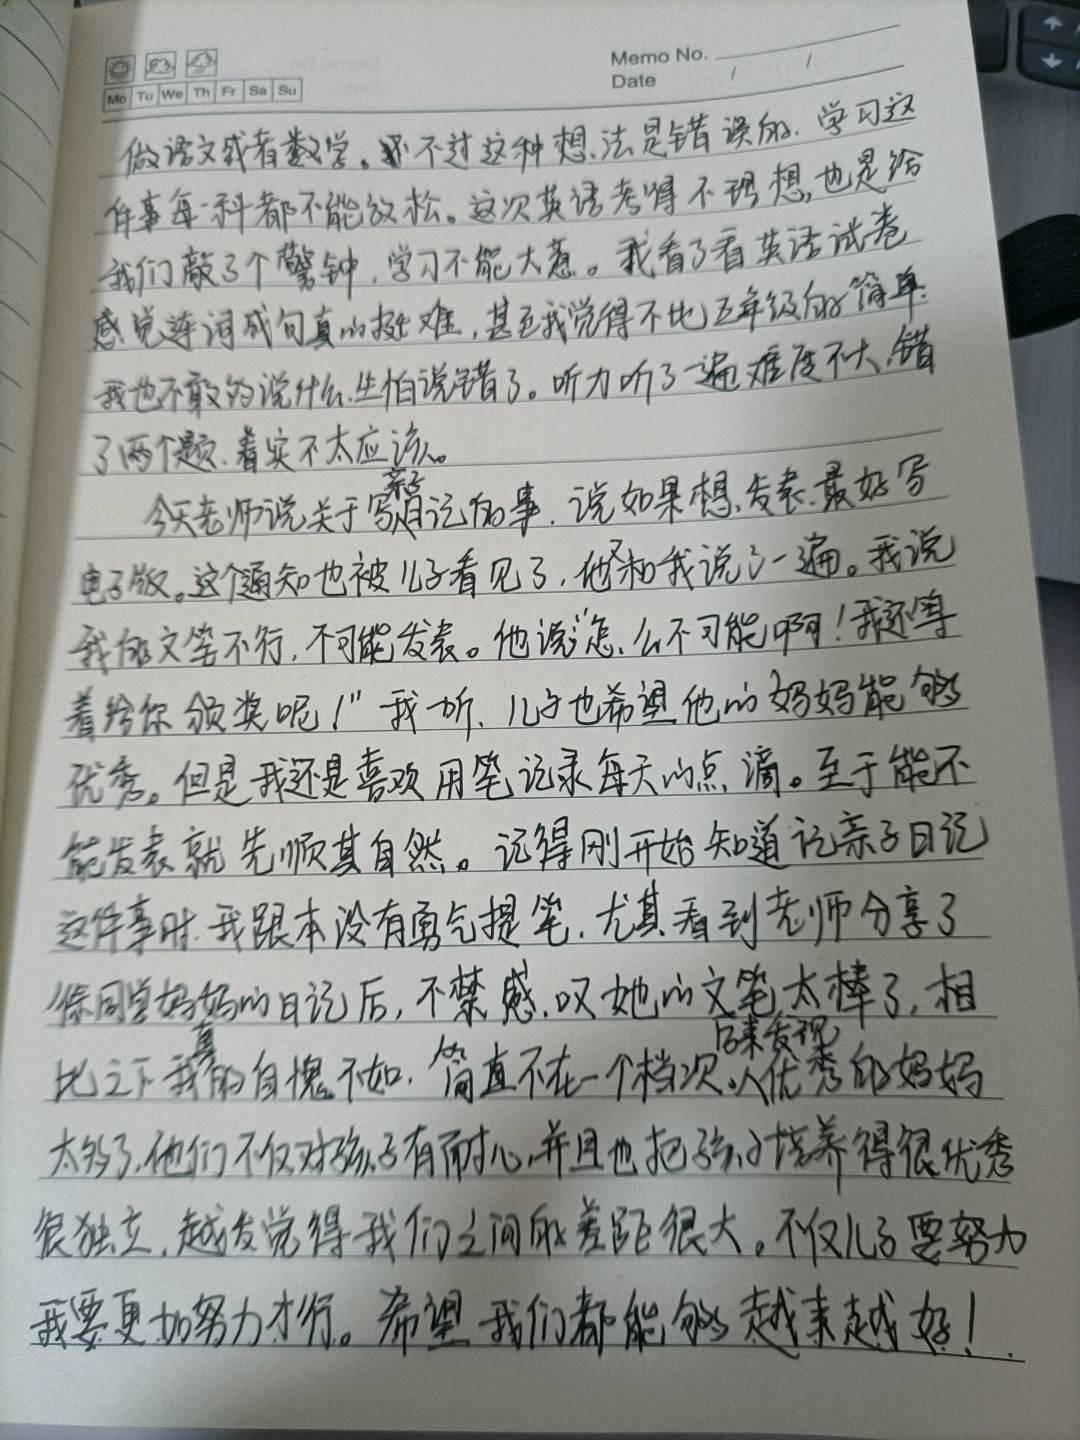 Memo No.
Date / /
Mo Tu We Th Fr Sa Su
做语文或者数学。不过这种想法是错误的，学习这
件事每一科都不能放松。这次英语考得不理想，也是给
我们敲了个警钟，学习不能大意。我看了看英语试卷
感觉连词成句真的挺难，甚至我觉得不比五年级的简单
我也不敢多说什么，生怕说错了。听力听了一遍难度不大，错
了两个题，着实不太应该。
今天老师说关于写亲子日记的事，说如果想发表，最好写
电子版。这个通知也被儿子看见了，他又和我说了一遍。我说
我的文笔不行，不可能发表。他说“怎么不可能啊！我还等
着给你颁奖呢！”我一听，儿子也希望他的妈妈能够
优秀。但是我还是喜欢用笔记录每天的点滴。至于能不
能发表就先顺其自然。记得刚开始知道记亲子日记
这件事时，我跟本没有勇气提笔，尤其看到老师分享了
徐同学妈妈的日记后，不禁感叹她的文笔太棒了，相
比之下我真的自愧不如，简直不在一个档次。后来发现优秀的妈妈
太多了，他们不仅对孩子有耐心，并且也把孩子培养得很优秀
很独立，越发觉得我们之间的差距很大。不仅儿子要努力
我要更加努力才行。希望我们都能够越来越好！